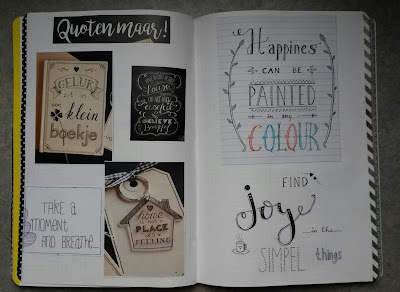 Quoten maar!
GELUK
zit in
een
klein
boekje
house
do not
BELIEVE
TAKE A
MOMENT
AND BREATHE...
home
is not a
PLACE
it's a
FEELING
Happines
CAN BE
PAINTED
in any
COLOUR
FIND
joy
in the
SIMPEL things